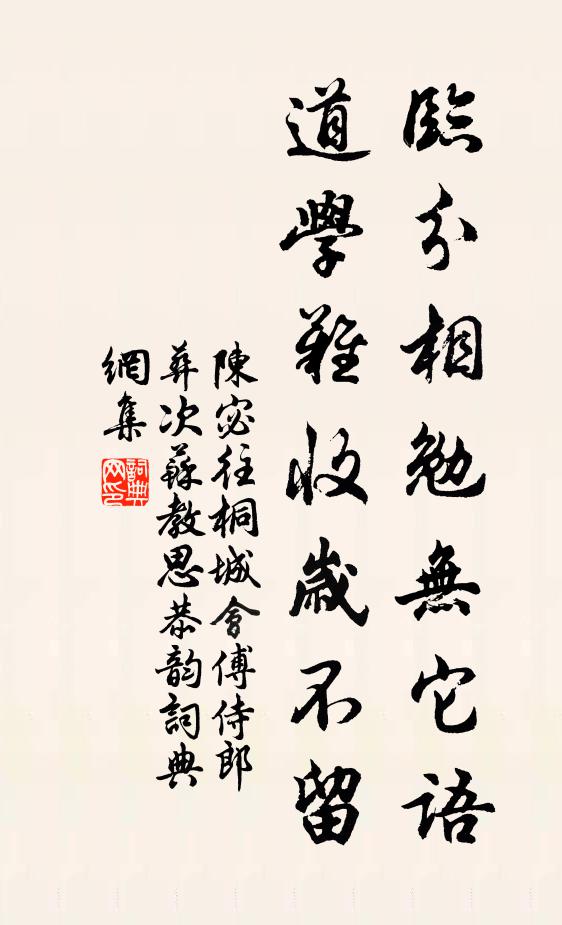 臨分相勉無它語
道學難收歲不留
陳宓往桐城會傅侍郎
葬次蘇教思恭韵詞典
網集
詞典網印